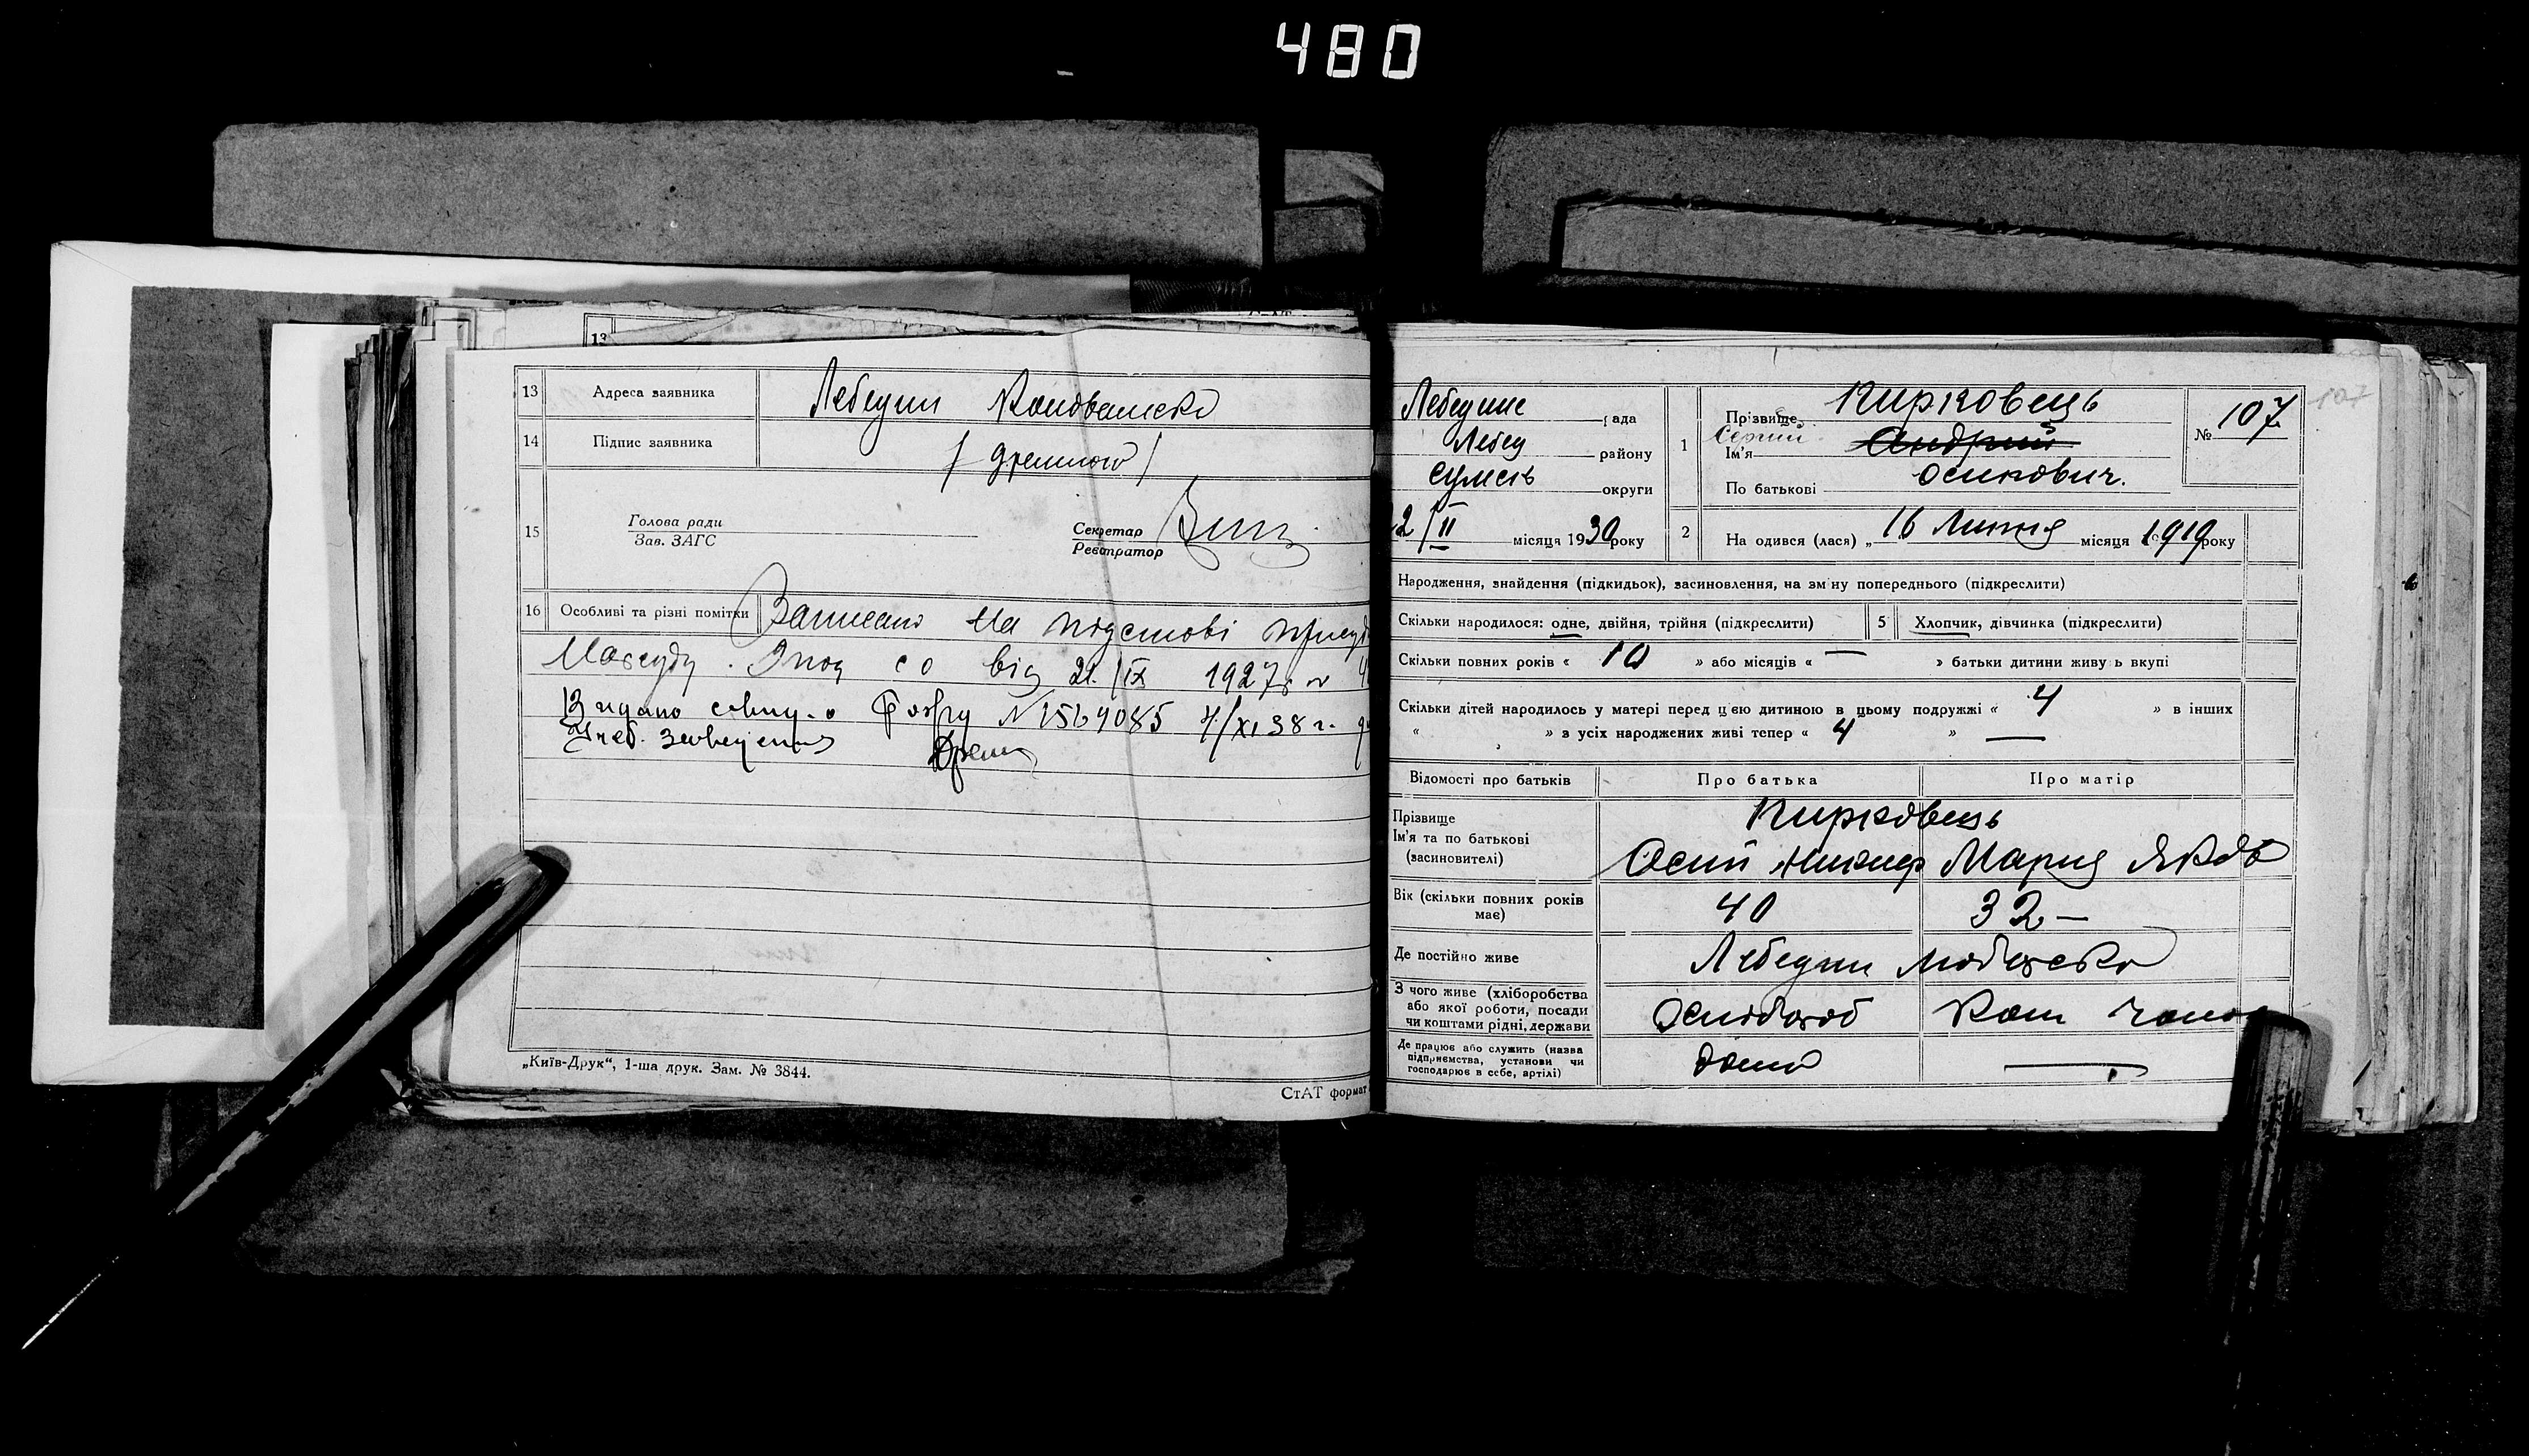 480
13 Адреса заявника Лебедин
14 Підпис заявника
15 Голова ради
Зав. ЗАГС
Секретар
Реєстратор
16 Особливі та різні помітки Записано на підставі присуд
від 21/IX 1927 р
Видано № 1564085 4/XI 38 г.
„Київ-Друк“, 1-ша друк. Зам. № 3844.
СтАТ формат
Лебедине рада
Лебед району
Сумсь округи
2/II місяця 1930 року
1 Прізвище Кирковець
Сергий
Ім'я Андрий
По батькові Осипович.
№ 107
107
2 На одився (лася) „ 16 Липня місяця 1919 року
Народження, знайдення (підкидьок), засиновлення, на зміну попереднього (підкреслити)
Скільки народилося: одне, двійня, трійня (підкреслити) 5 Хлопчик, дівчинка (підкреслити)
Скільки повних років « 10 » або місяців « — » батьки дитини живуть вкупі
Скільки дітей народилось у матері перед цією дитиною в цьому подружжі « 4 » в інших
« » з усіх народжених живі тепер « 4 » —
Відомості про батьків Про батька Про матір
Прізвище Кирковець
Ім'я та по батькові
(засиновителі) Осип Мария Яков
Вік (скільки повних років
має) 40 32 —
Де постійно живе Лебедин
З чого живе (хліборобства
або якої роботи, посади
чи коштами рідні, держави
Де працює або служить (назва
підприємства, установи чи
господарює в себе, артілі) дома —